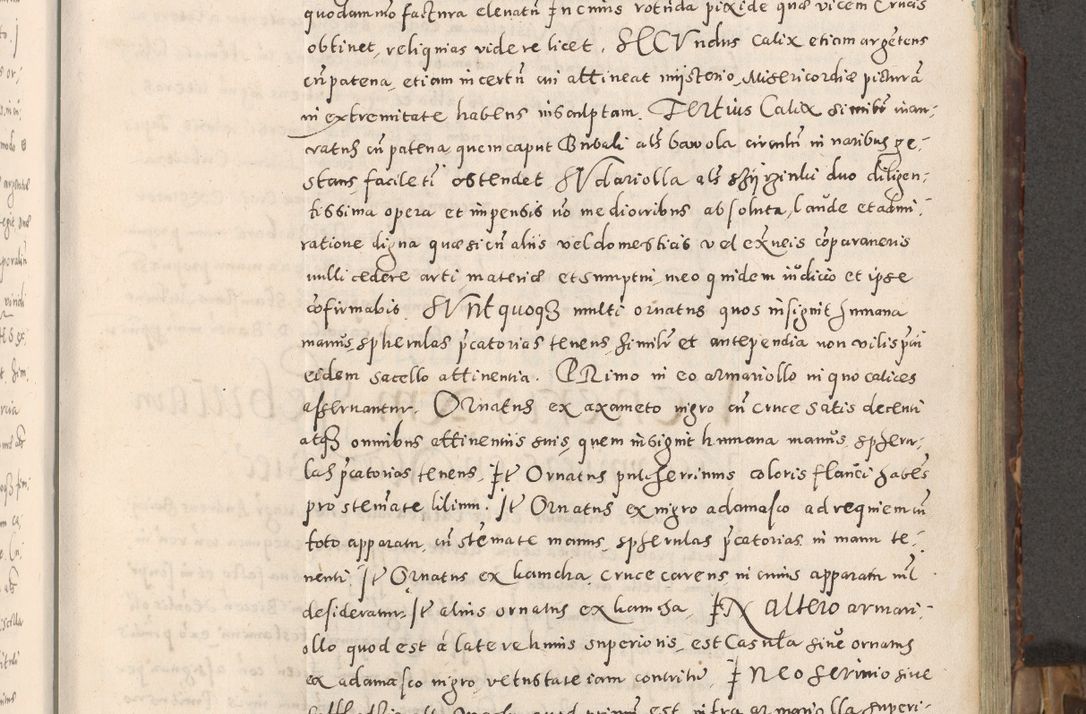 quodammo factura elevatū In cuius rotūda pixide quæ vicem Crucis
obtinet, reliquias videre licet. SECUndus Calix etiam argētens
cū patena, etiam incertū cui attineat mysterio, Misericordiæ picturā
in extremitate habens insculptam. TERtius Calix similit̄ inau¬
ratus cū patena, quem caput Bubali als bawola circulū in naribus ge¬
stans, facile tī ostendet SUdariolla als duo diligen¬
tissima opera et impensis nō mediocribus absoluta, laude et admi¬
ratione digna quæ sicū aliis vel domesticis vel exneis cōparaneris
nulli cedere arti materiæ et sumptui, meo quidem iūdicio et ipse
cōfirmabis SUNt quoq3 multi ornatus quos insignit humana
manus, spherulas p̄catorias tenens, Similr et antependia non vilis p̄cii
eidem sacello attinentia. PRimo in eo armariollo in quo calices
asservantur. Ornatus ex axameto nigro cū cruce satis decenti
atq3 omnibus attinentiis suis, quem insignit humana manus, spheru¬
las p̄catorias tenens, It̄ Ornatus pulcherrimus coloris flauei habēs
pro stem̄ate lilium. It̄ Ornatus ex nigro adamasco ad requiem cū
toto apparatu, cū stēmate manus, spherulas p̄catorias in manu te¬
nenti, It̄ Ornatus ex hamcha, cruce carens in cuius apparatu nil
desideratur, It̄ alius ornatus ex hamcha, IN altero armari¬
ollo quod est à latere huius superioris, est Casula sive ornatus
ex adamasco nigro, vetustate iam contritu, In eo scrinio sive
Ornatus quod primum est infra armariolla superi¬